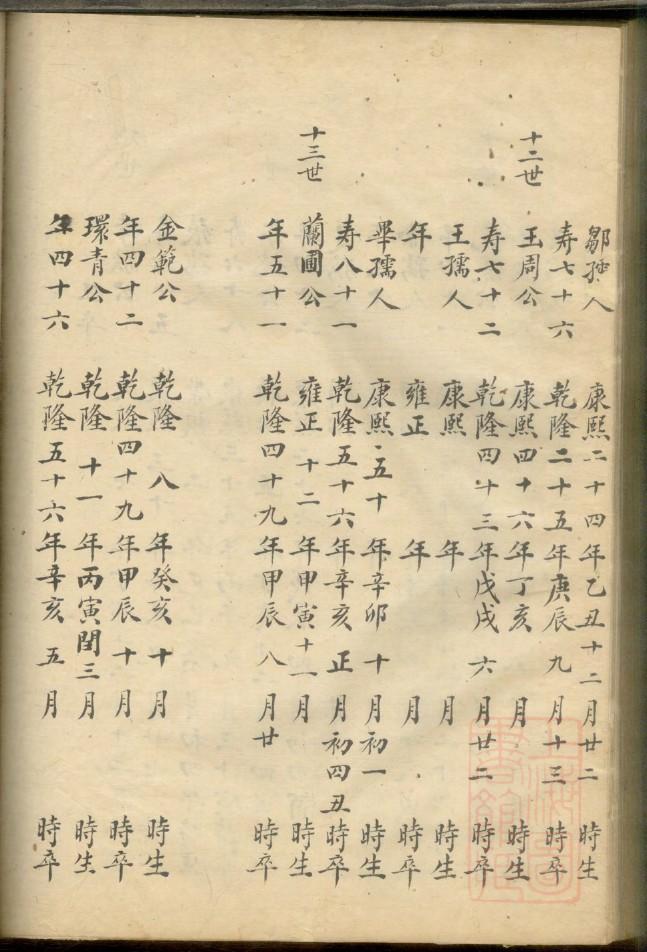 鄒孺人 康熙二十四年乙丑十二月廿二 時生
十二世 寿七十六 乾隆二十五年庚辰九月十三 時卒
玉周公 康熙四十六年丁亥 月 時生
寿七十二 乾隆四十三年戊戌六月廿二 時卒
王孺人 康熙 年 月 時生
年 雍正 年 月 時卒
畢孺人 康熙五十年辛卯十月初一 時生
寿八十一 乾隆五十六年辛亥正月初四丑時卒
十三世 蘭圃公 雍正十二年甲寅十一月 時生
年五十一 乾隆四十九年甲辰八月廿 時卒
金範公 乾隆八年癸亥十月 時生
年四十二 乾隆四十九年甲辰十月 時卒
環青公 乾隆十一年丙寅閏三月 時生
年四十六 乾隆五十六年辛亥五月 時卒